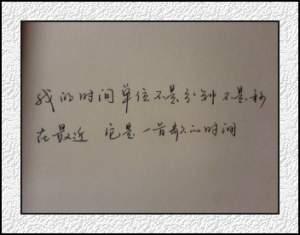 我的时间单位不是分钟 不是秒
在最近 它是一首歌的时间